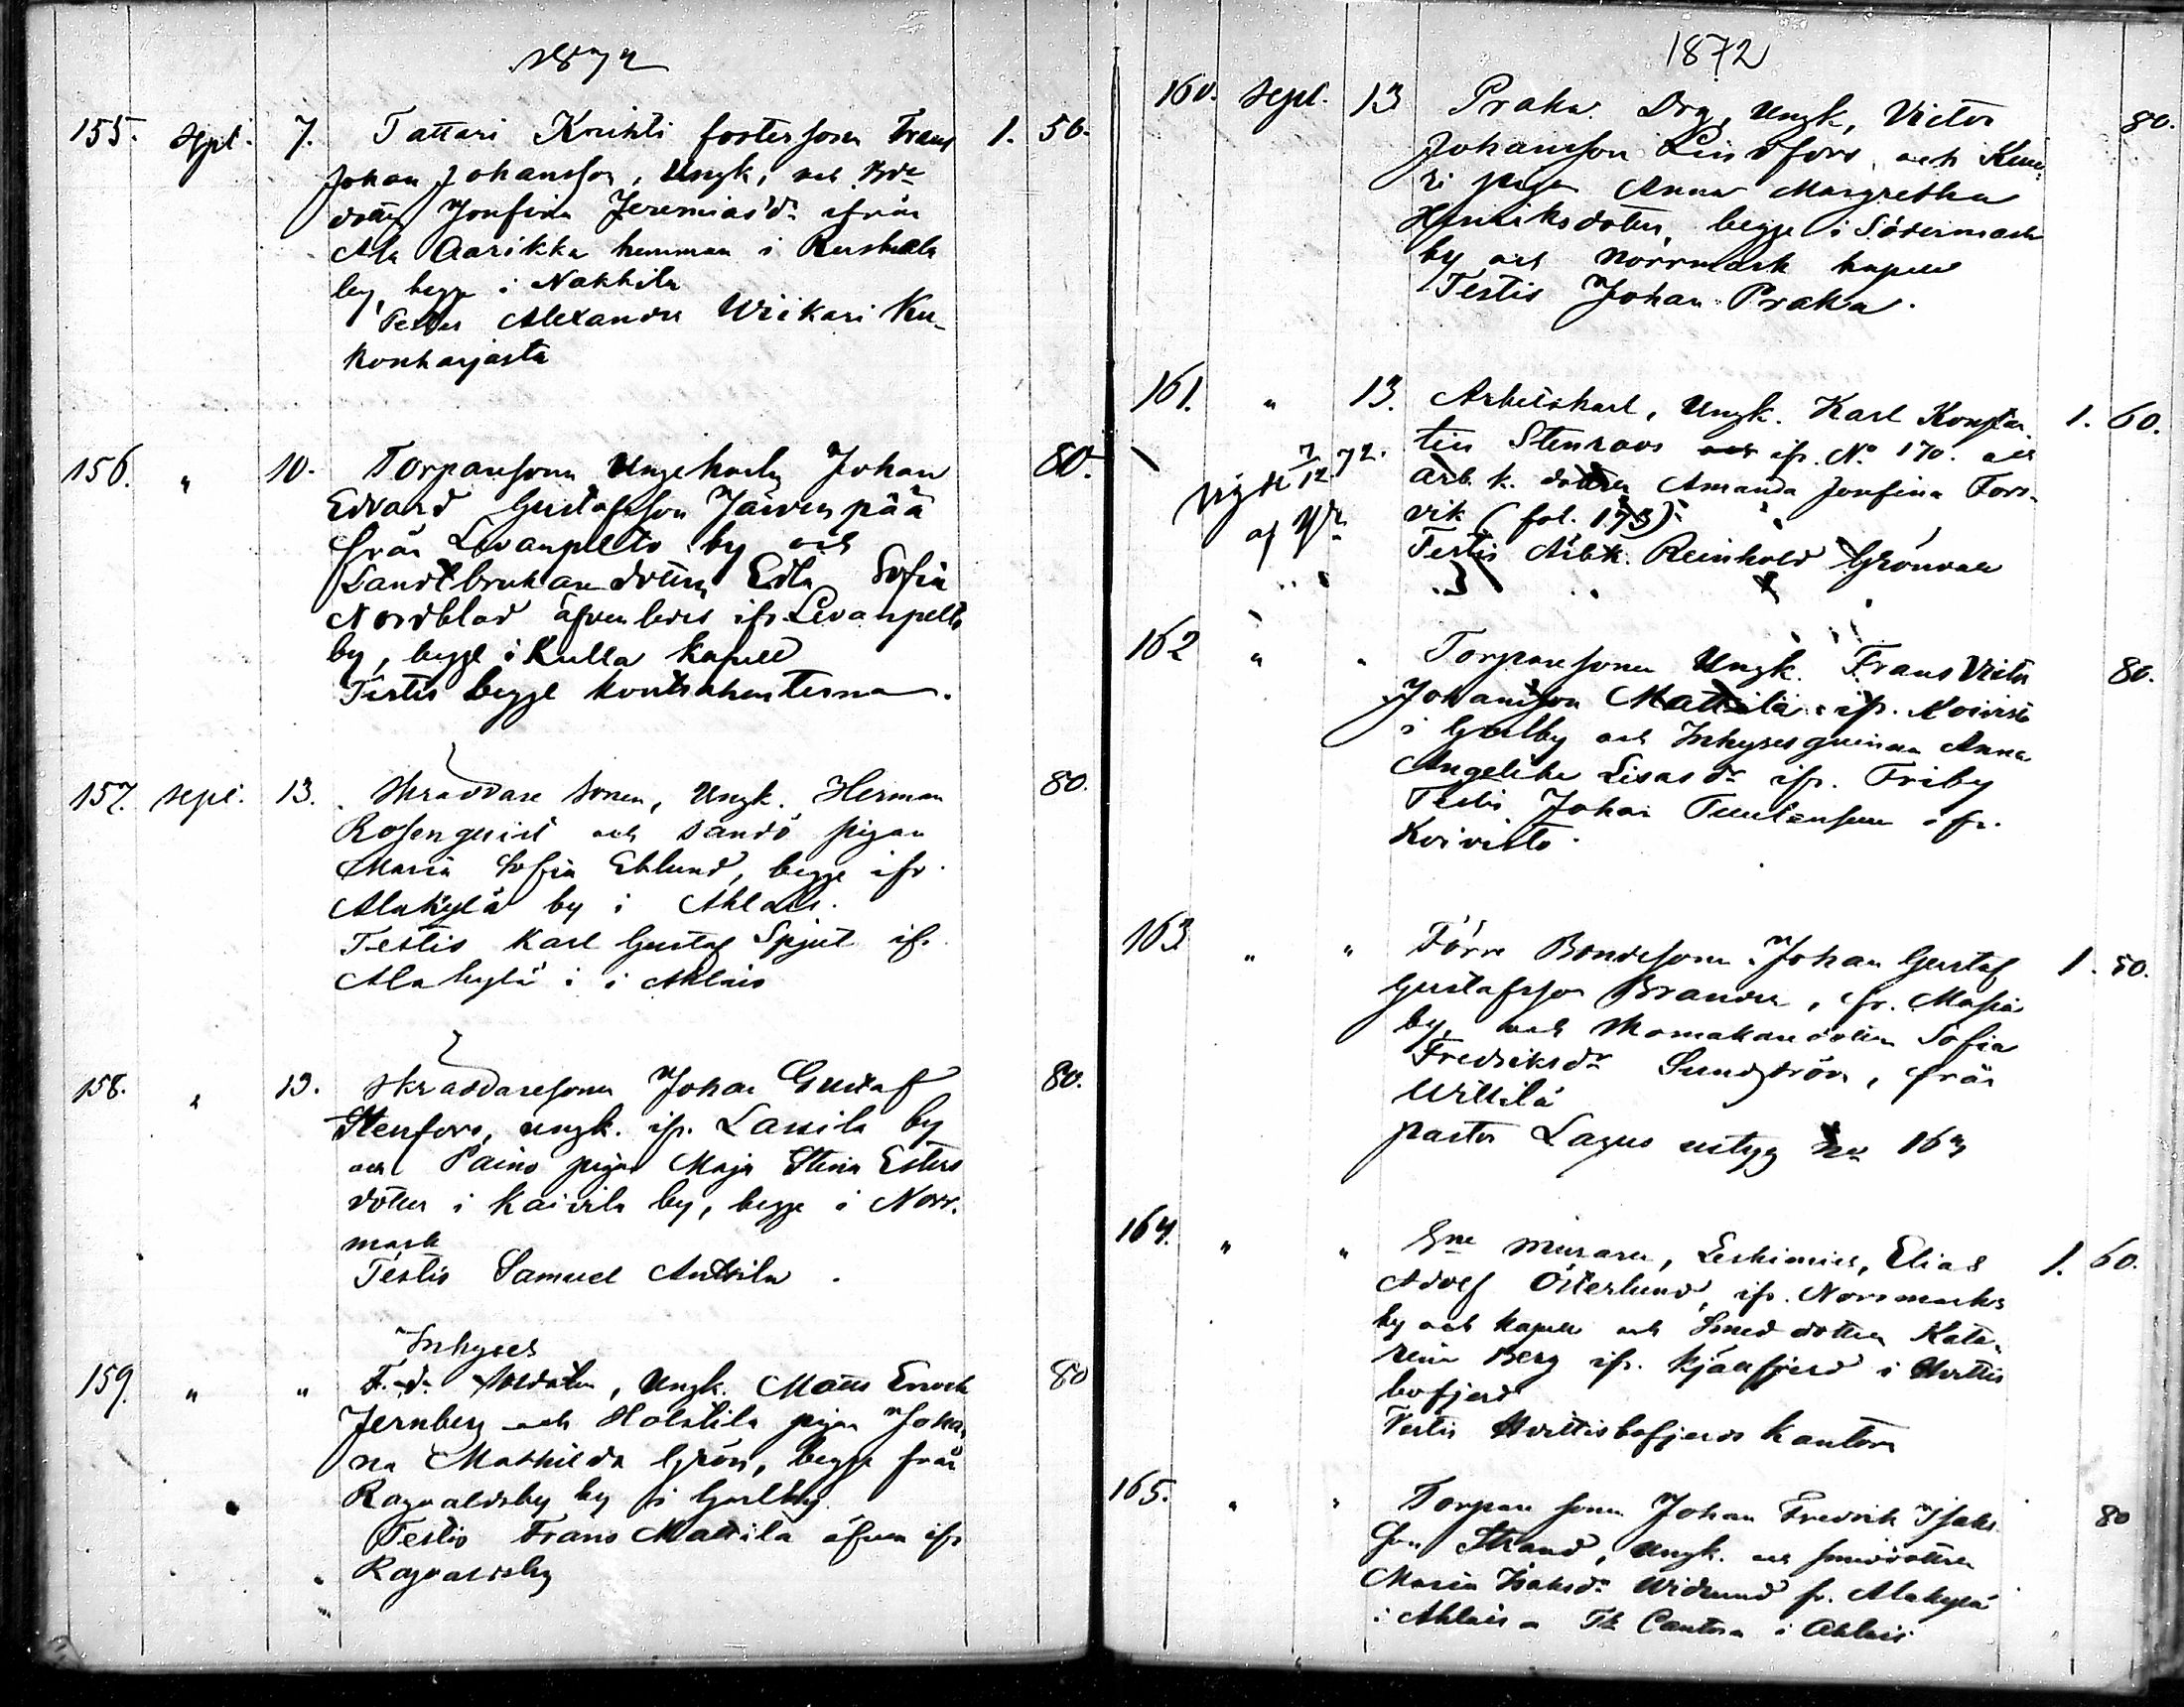 1872
155. Sept. 7. Tattari Krihti fostersonen Frans 1. 50.
Johan Johansson, Ungk, och Bde
dottren Josefina Jeremiasdr ifrån
Ala Aarikka hemman i Ruskila
by, begge i Nakkila
Testis Alexander Wiikari Ku-
konharjasta
156. " 10. Torparesonen Ungkarln Johan 80.
Edvard Gustafsson Järvenpää
från Levanpelto by och
Landtbrukaredottren Edla Sofia
Nordblad äfvenledes ifr. Levanpelto
by, begge i Kulla Kapell
Testis begge kontrahenterna.
157. Sept. 13. Skräddare sonen, Ungk. Herman 80.
Rosenqvist och Sandö pigan
Maria Sofia Eklund, begge ifr.
Alakylä by i Ahlais.
Testis Karl Gustaf Spjut ifr.
Alakylä i i Ahlais
158. " 13. Skräddaresonen Johan Gustaf 80.
Stenfors, ungk. ifr. Lassila by
och Paino pigan Maja Stina Esters
dotter i Kairila by, begge i Norr-
mark
Testis Samuel Anttila.
Inhyses
159. " " F. d. Soldaten, Ungk. Matts Enock 80
Jernberg och Holstila pigan Johan-
na Mathilda Grön, begge från
Ragvaldsby by i Gulby.
Testis Frans Mattila äfven ifr
Ragvaldsby
1872
160. Sept. 13 Praka Drg, Ungk, Victor 80.
Johansson Lindfors och
pigan Anna Margretha
Henriksdotter, begge i Södermark
by och Norrmark kapell
Testis Johan Praka.
161. " 13. Arbetskarl, Ungk. Karl Konstan- 1. 60.
tin Stenroos ifr. No 170. och
vigde 7/12 72. arb. k. dottren Amanda Josefina Fors-
vik (fol. 173)
Testis Arbk. Reinhold Grönvall
162 " " Torparesonen Ungk. Frans Victor 80.
Johansson Mattila ifr. Koivisto
i Gulby och Inhysesqvinnan Anna
Angelika Lisasdr ifr. Friby
Testis Johan ifr.
Koivisto.
163 " " Förre Bondesonen Johan Gustaf 1. 50.
Gustafsson Brander, fr. Masia
by, och Skomakaredottren Sofia
Fredriksdr Sundström, från
Wittilä
pastor Lagus
164. " " Gne murare, Leskimies, Elias 1. 60.
Adolf Österlund, ifr. Norrmarks
by och kapell och Smed dottren Kata-
rina Berg ifr. Kjällfjerd i Hvittis
bofjerd
Testis Hvittisbofjerds Kantorn
165. " " Torpare sonen Johan Fredrik Isaks- 80
son Strand, Ungk. och smeddottren
Maria Isaksdr Widlund fr. Alakylä
i Ahlais Cantorn i Ahlais